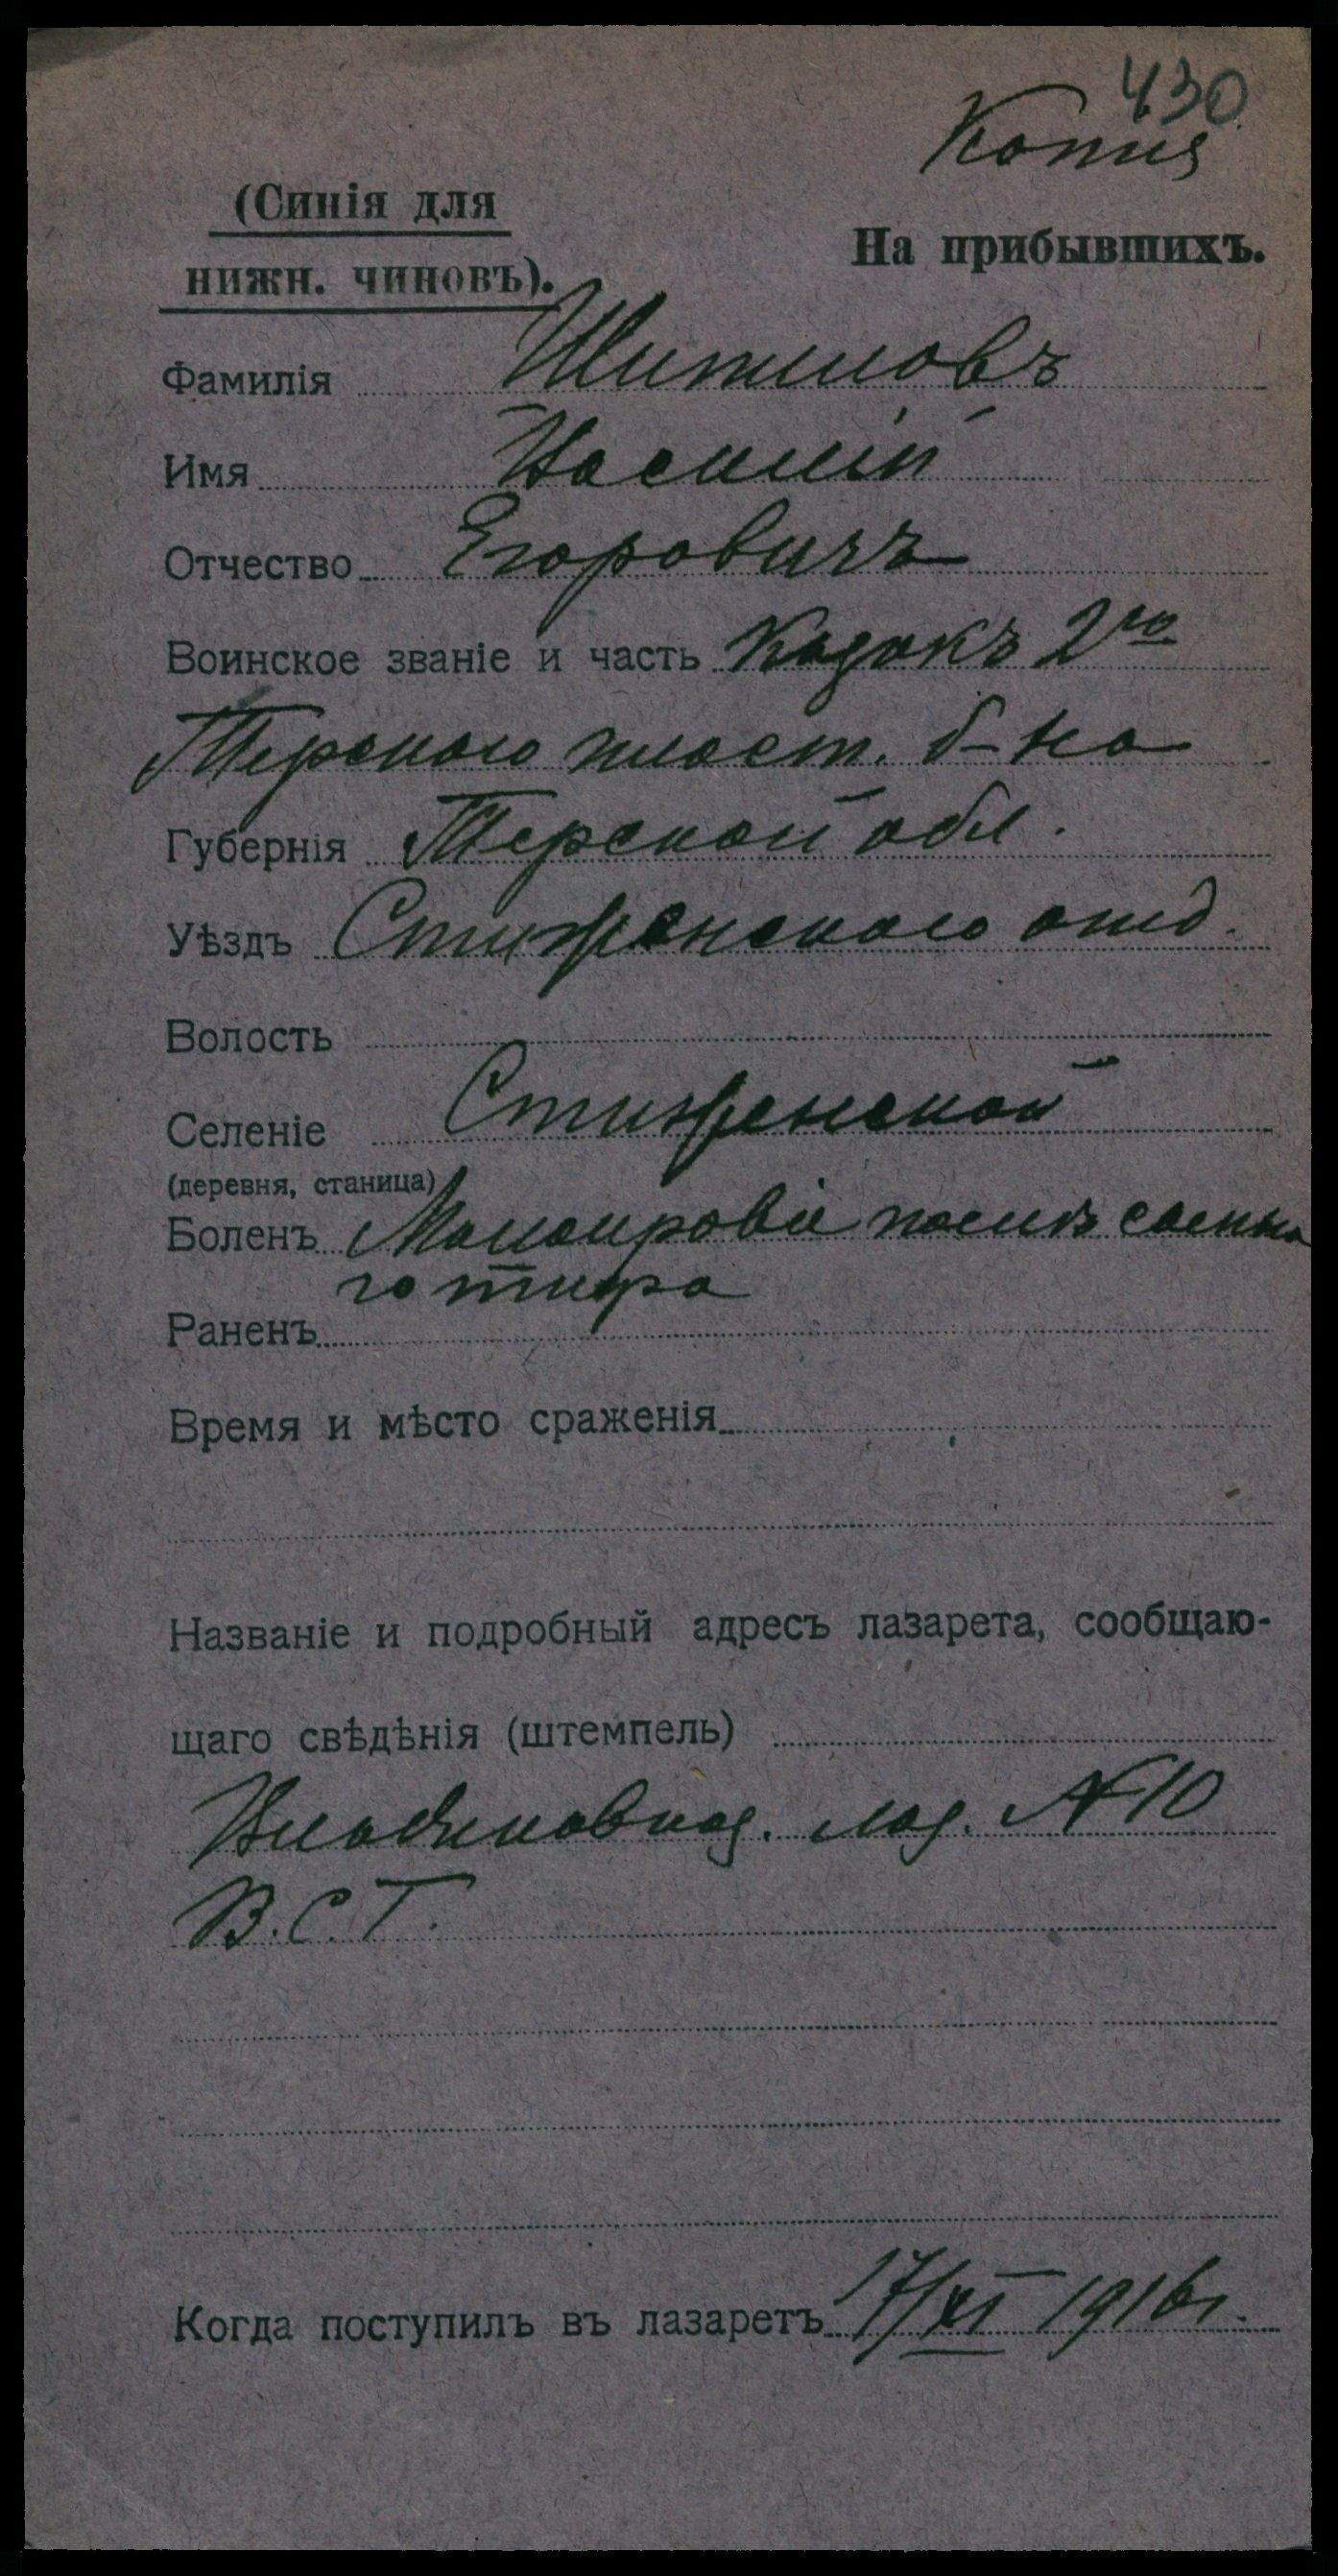 430
Копия
(Синія для
На прибывшихъ.
нижн. чиновъ).
Фамилія Шитиловъ
Имя Василій
Отчество Егоровичъ
Воинское званіе и часть Козакъ 2го
Терского пласт. б-на
Губернія Терской обл.
Уѣздъ отд.
Волость
Селеніе
(деревня, станица)
Боленъ после сыпно
го тифа
Раненъ
Время и мѣсто сраженія
Названіе и подробный адресъ лазарета, сообщаю-
щаго свѣдѣнія (штемпель)
Владикавказ. лаз. №10
В.С.Г.
Когда поступилъ въ лазаретъ 17/XI 1916г.